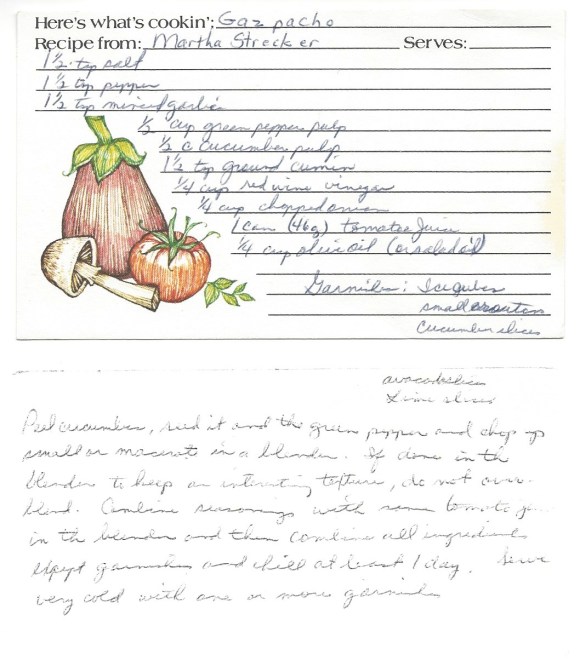 Here's what's cookin': Gazpacho
Recipe from: Martha Strecker Serves:
1 1/2 tsp salt
1 1/2 tsp pepper
1 1/2 tsp minced garlic
1/2 cup green pepper pulp
1/2 c cucumber pulp
1 1/2 tsp ground cumin
1/4 cup red wine vinegar
1/4 cup chopped onion
1 can (46oz) tomatoe juice
1/4 cup olive oil (or salad oil)
Garnishes: Ice cubes
small croutons
cucumber slices
avocado slices
Lime slices
Peel cucumber, seed it and the green pepper and chop up
small or macerate in a blender. If done in the
blender to keep an interesting texture, do not over
blend. Combine seasonings with some tomato
in the blender and then combine all ingredients
except garnishes and chill at least 1 day. Serve
very cold with one or more garnishes